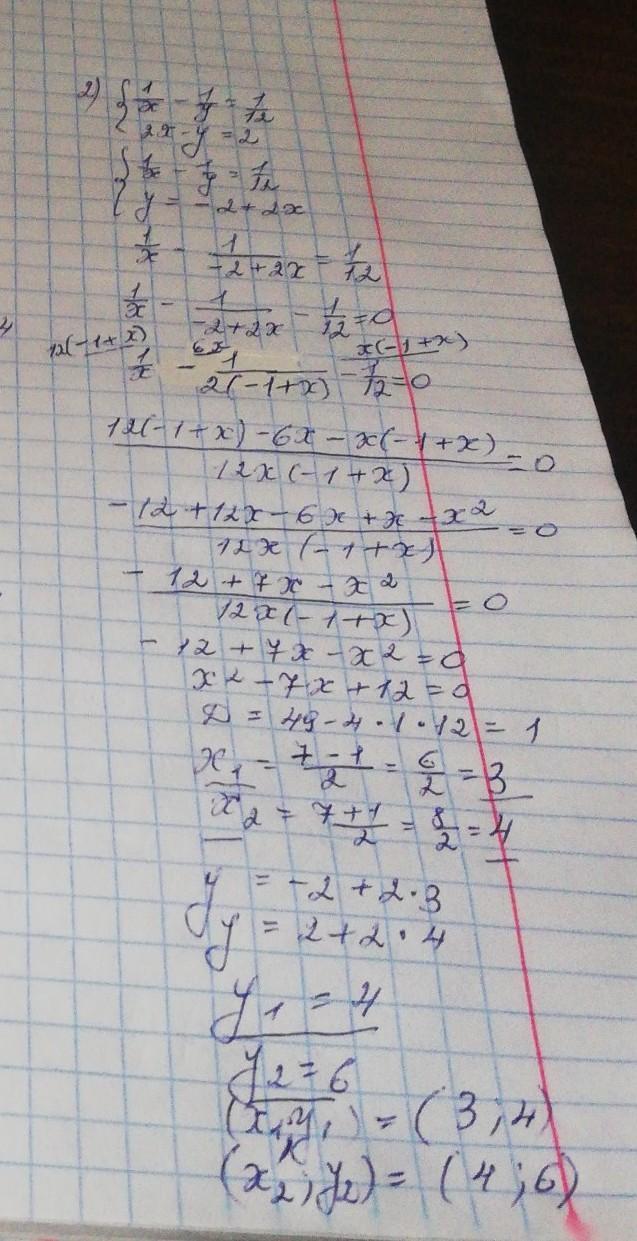 2) { 1/x - 1/y = 1/12
2x - y = 2
{ 1/x - 1/y = 1/12
y = -2 + 2x
1/x - 1/(-2+2x) = 1/12
1/x - 1/(-2+2x) - 1/12 = 0
12(-1+x) 6x x(-1+x)
1/x - 1/(2(-1+x)) - 1/12 = 0
(12(-1+x) - 6x - x(-1+x))/(12x(-1+x)) = 0
(-12 + 12x - 6x + x - x²)/(12x(-1+x)) = 0
(-12 + 7x - x²)/(12x(-1+x)) = 0
-12 + 7x - x² = 0
x² - 7x + 12 = 0
D = 49 - 4 · 1 · 12 = 1
x₁ = (7-1)/2 = 6/2 = 3
x₂ = (7+1)/2 = 8/2 = 4
y = -2 + 2·3
y = 2 + 2·4
y₁ = 4
y₂ = 6
(x₁ y₁) = (3; 4)
(x₂; y₂) = (4; 6)